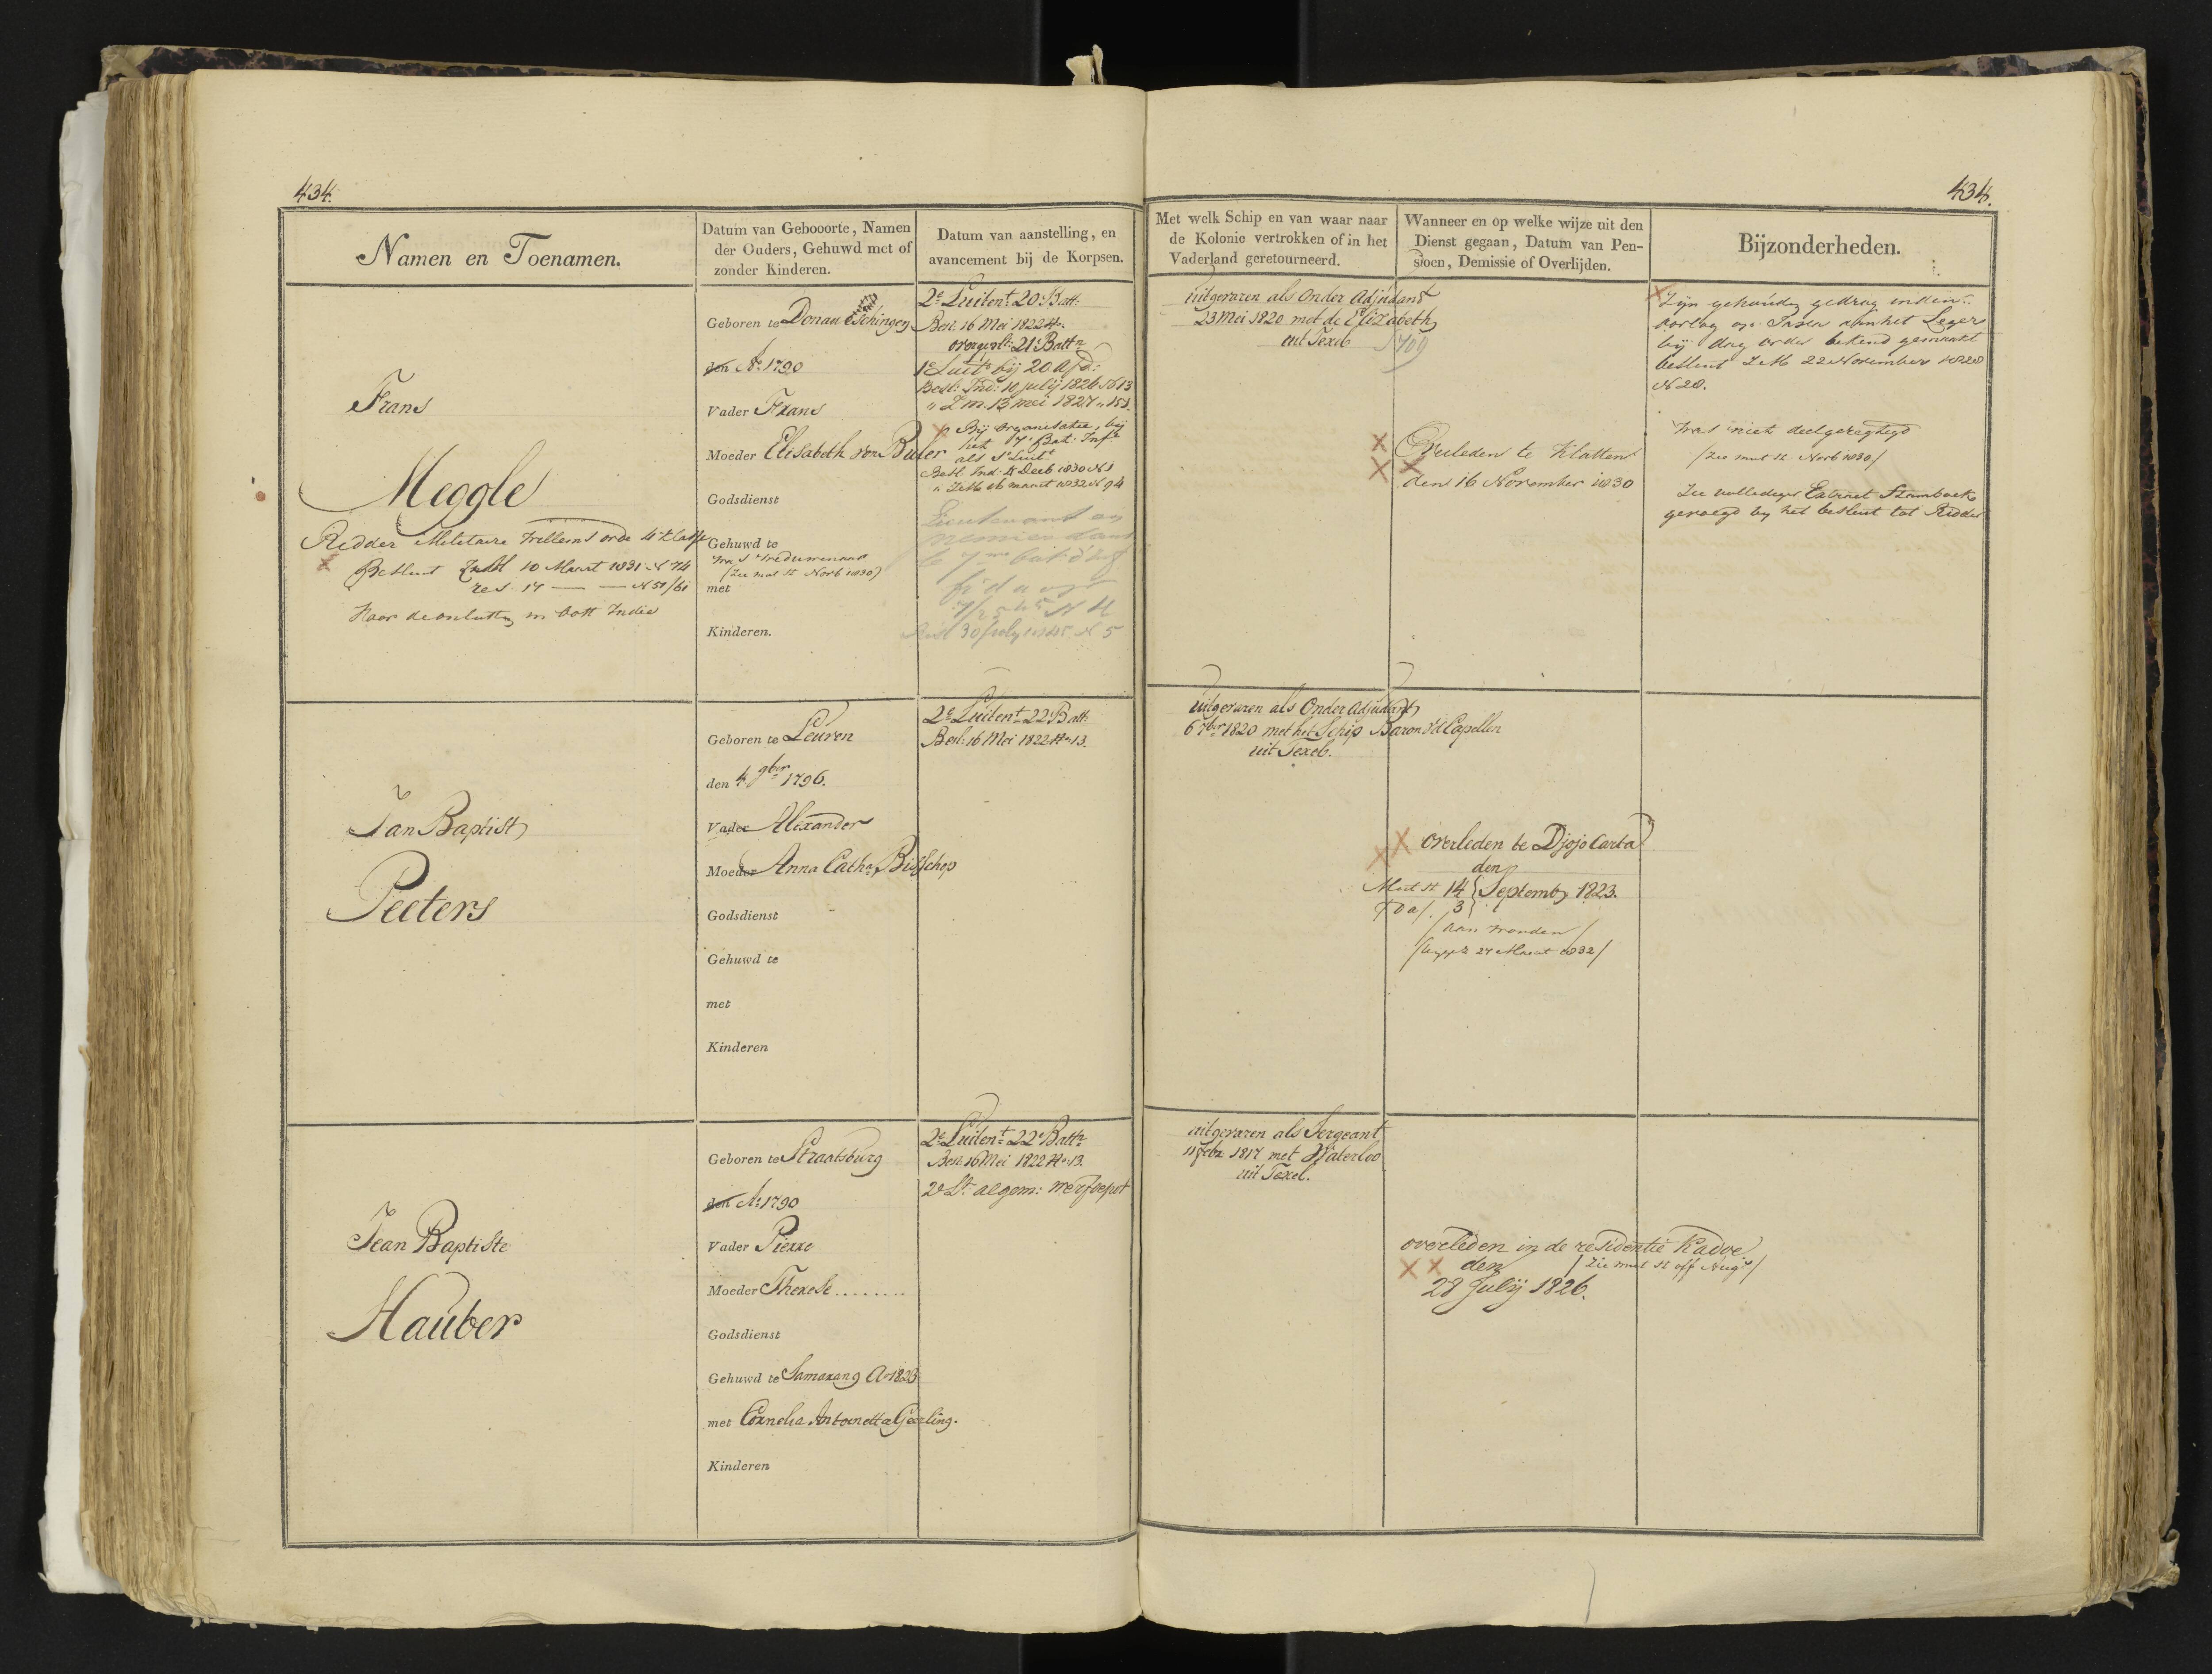 434.
434.
Namen en Toenamen.
Datum van Gebooorte, Namen
der Ouders, Gehuwd met of
zonder Kinderen.
Datum van aanstelling, en
avancement bij de Korpsen.
Met welk Schip en van waar naar
de Kolonie vertrokken of in het
Vaderland geretourneerd.
Wanneer en op welke wijze uit den
Dienst gegaan, Datum van Pen-
sioen, Demissie of Overlijden.
Bijzonderheden.
Frans
Meggle
Ridder Militaire Willems orde 4e klasse
Besluit ZMB 10 Maart 1831 N 74
res. 17 — — N 51/61
Voor de onlusten in Oost Indie
Geboren te Donau Eschingen
den Ao 1790
Vader Frans
Moeder Elisabeth von Buler
Godsdienst
Gehuwd te
Was Weduwenaar
(Zie mut st Novb 1830)
met
Kinderen.
2e Luitent 20e Batt:
Besl. 16 Mei 1822 No.
overgeplt: 21e Battn
1e Luitt bij 20 Afd:
Besl: Ind: 10 julij 1826 N 13
" Z m. 13 mei 1827 " 151.
Bij organisatie, bij
het 7e Bat: Infie
als 1e Luitt
Besl. Ind: 4 Decb 1830 N 1
" ZMB 16 maart 1832 N 94
30 July N 5
uitgevaren als Onder Adjudant
23 Mei 1820 met de Elizabeth
uit Texel
1709
Overleden te Klatten
den 16 November 1830
Zijn gehouden gedrag in den
oorlog op Java aan het Leger
bij dag order bekend gemaakt
besluit ZMB 22 November 1828
N 28.
Was niet deelgeregtigd
/Zie mut st. Novb 1830/
Zie volledige Extract Stamboek
gevoegd bij het besluit tot Ridder
Jan Baptist
Peeters
Geboren te Leuven
den 4 9ber 1796.
Vader Alexander
Moeder Anna Catha Bisschop
Godsdienst
Gehuwd te
met
Kinderen
2e Luitent 22e Batt:
Besl: 16 Mei 1822 No 13.
uitgevaren als Onder Adjudant
6 7br 1820 met het Schip Baron v/d Capellen
uit Texel.
overleden te Djojo Carta
den
Mut st 14 } Septemb 1823.
3
/aan wonden/
27 Maart 1832/
Jean Baptiste
Hauber
Geboren te Straatsburg
den Ao 1790
Vader Pierre
Moeder Therese ........
Godsdienst
Gehuwd te Samarang Ao 1823
met Cornelia Antoinetta Geerling.
Kinderen
2e Luitent 22e Battn
Besl: 16 Mei 1822 No 13.
2e Lt. algem: werfdepot
uitgevaren als Sergeant
11 Febr 1817 met Waterloo
uit Texel.
overleden in de residentie Kadoe
den /Zie mut st off Augs/
28 Julij 1826.